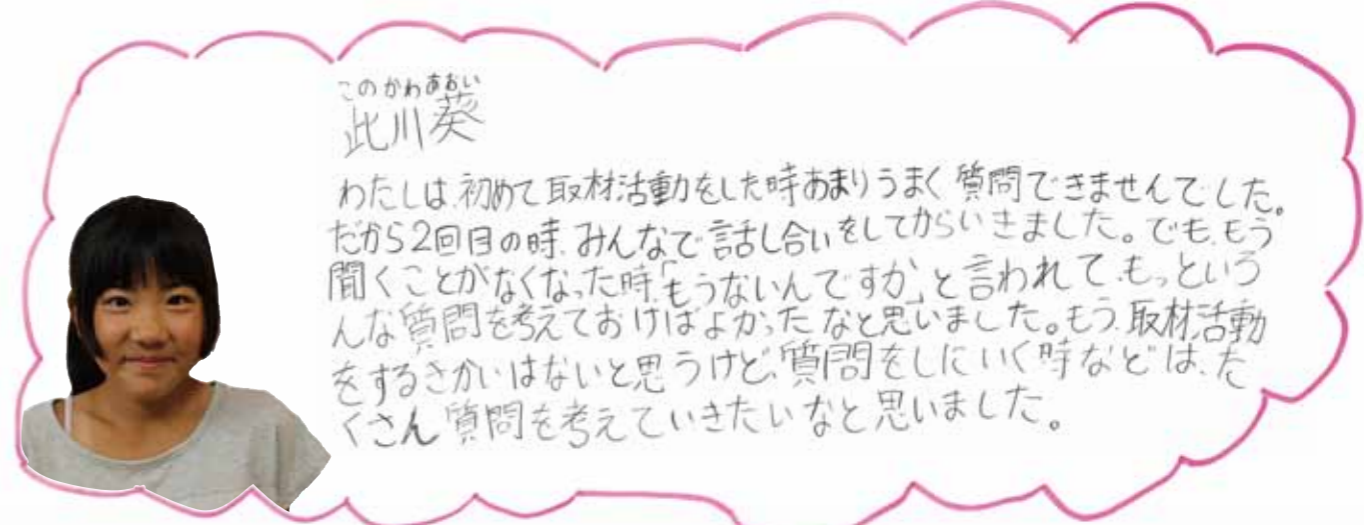 このかわあおい
此川葵
わたしは、初めて取材活動をした時あまりうまく質問できませんでした。
だから2回目の時、みんなで話し合いをしてからいきました。でも、もう
聞くことがなくなった時、「もうないんですか」と言われて、もっといろ
んな質問を考えておけばよかったなと思いました。もう、取材活動
をするきかいはないと思うけど、質問をしにいく時などは、た
くさん質問を考えていきたいなと思いました。